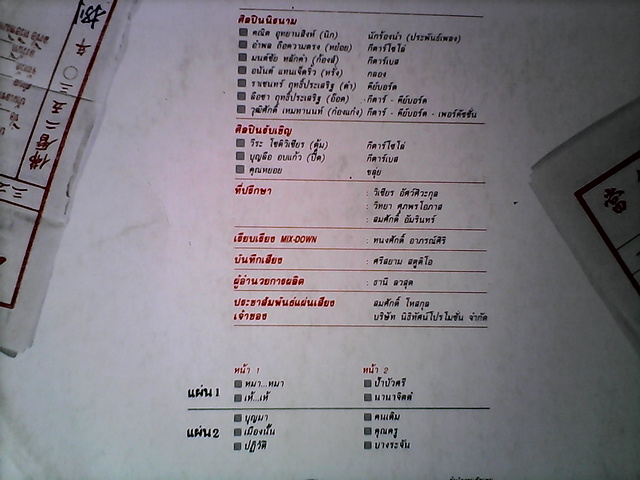 ศิลปินนิรนาม
คณิต อุทยานสิงห์ (นิก) นักร้องนำ (ประพันธ์เพลง)
อำพล ถือความตรง (หย่อย) กีตาร์โซโล่
มนต์ชัย หลักคำ (ก้องส์) กีตาร์เบส
อนันต์ แทนเจ็ดริ้ว (หรั่ง) กลอง
ราเชนทร์ ฤทธิ์ประเสริฐ (ดำ) คีย์บอร์ด
ลือชา ฤทธิ์ประเสริฐ (อ๊อด) กีตาร์ - คีย์บอร์ด
วุฒิศักดิ์ เหมทานนท์ (ก่องแก่ง) กีตาร์ - คีย์บอร์ด - เพอร์คัชชั่น
ศิลปินรับเชิญ
วีระ โชติวิเชียร (ตุ้ม) กีตาร์โซโล่
บุญลือ อบแก้ว (ปี๊ด) กีตาร์เบส
คุณหยอย ขลุ่ย
ที่ปรึกษา : วิเชียร อัศว์ศิวะกุล
: วิทยา ศุภพรโอภาส
: สมศักดิ์ อัมรินทร์
เรียบเรียง MIX-DOWN : ทนงศักดิ์ อาภรณ์ศิริ
บันทึกเสียง : ศรีสยาม สตูดิโอ
ผู้อำนวยการผลิต : ธานี ลาสุด
ประชาสัมพันธ์แผ่นเสียง สมศักดิ์ โหสกุล
เจ้าของ บริษัท นิธิทัศน์โปรโมชั่น จำกัด
หน้า 1 หน้า 2
แผ่น 1
หมา...หมา ป้าบัวศรี
เห้...เห้ นานาจิตต์
แผ่น 2
บุญมา คนเดิม
เมืองนั้น คุณครู
ปฏิวัติ บางระจัน